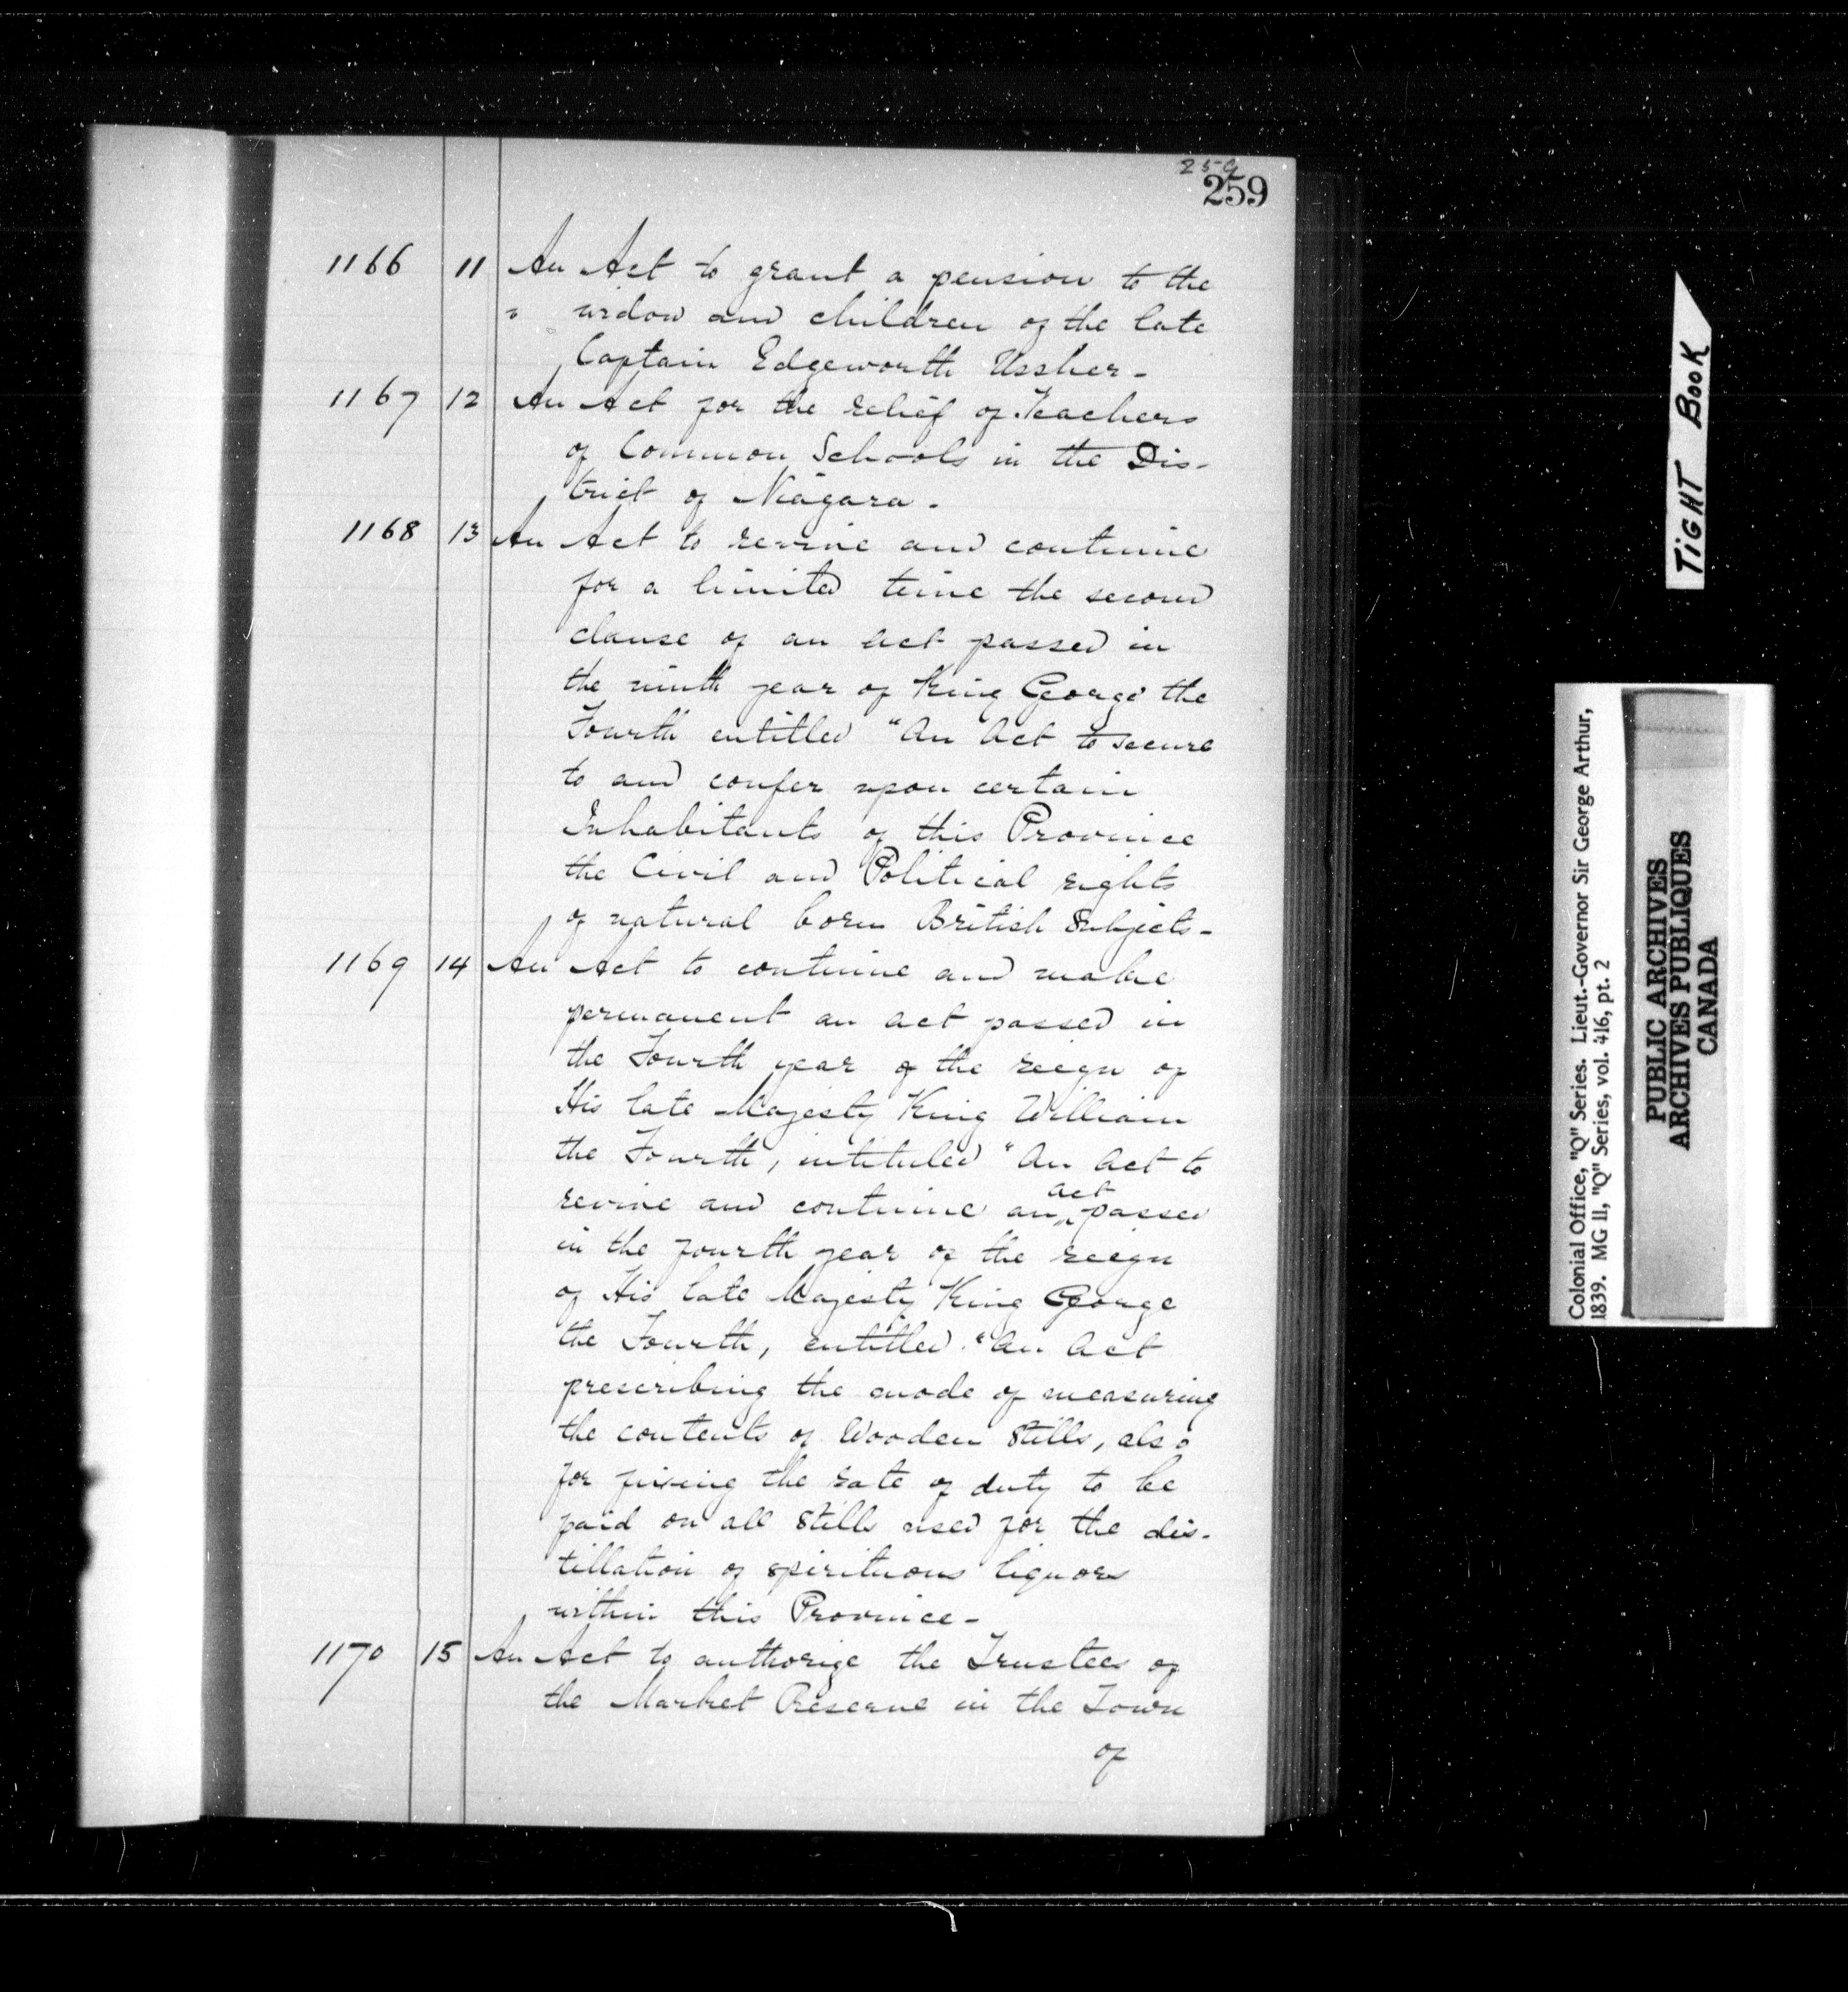 259
259
1166 11 An Act to grant a pension to the
widow and children of the late
Captain Edgeworth Ussher-
1167 12 An Act for the relief of Teachers
of Common Schools in the Dis-
trict of Niagara.
1168 13 An Act to revive and continue
for a limited time the second
clause of an act passed in
the ninth year of King George the
Fourth entitled "An Act to secure
to and confer upon certain
Inhabitants of this Province
the Civil and Political rights
of natural born British Subjects-
1169 14 An Act to continue and make
permanent an act passed in
the Fourth year of the reign of
His late Majesty King William
the Fourth, intituled "An Act to
act
revive and continue an ^ passed
in the fourth year of the reign
of His late Majesty King George
the Fourth, entitled "An Act
prescribing the mode of measuring
the contents of Wooden Stills, also
for fixing the rate of duty to be
paid on all Stills used for the dis-
tillation of spirituous liquors
within this Province-
1170 15 An Act to authorize the Trustees of
the Market Reserve in the Town
of
TIGHT BOOK
Colonial Office, "Q" Series. Lieut.-Governor Sir George Arthur,
1839. MG 11, "Q" Series, vol. 416, pt. 2
PUBLIC ARCHIVES
ARCHIVES PUBLIQUES
CANADA